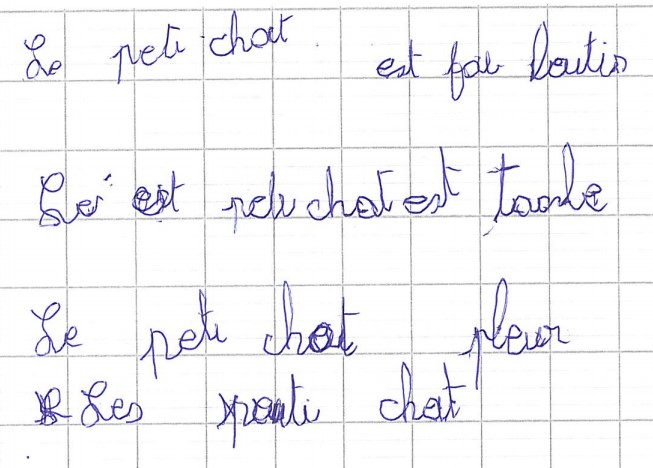 Le peti chat est fai loutin
Le est peti chat est tomle
Le peti chat pleur
Les pouti chat